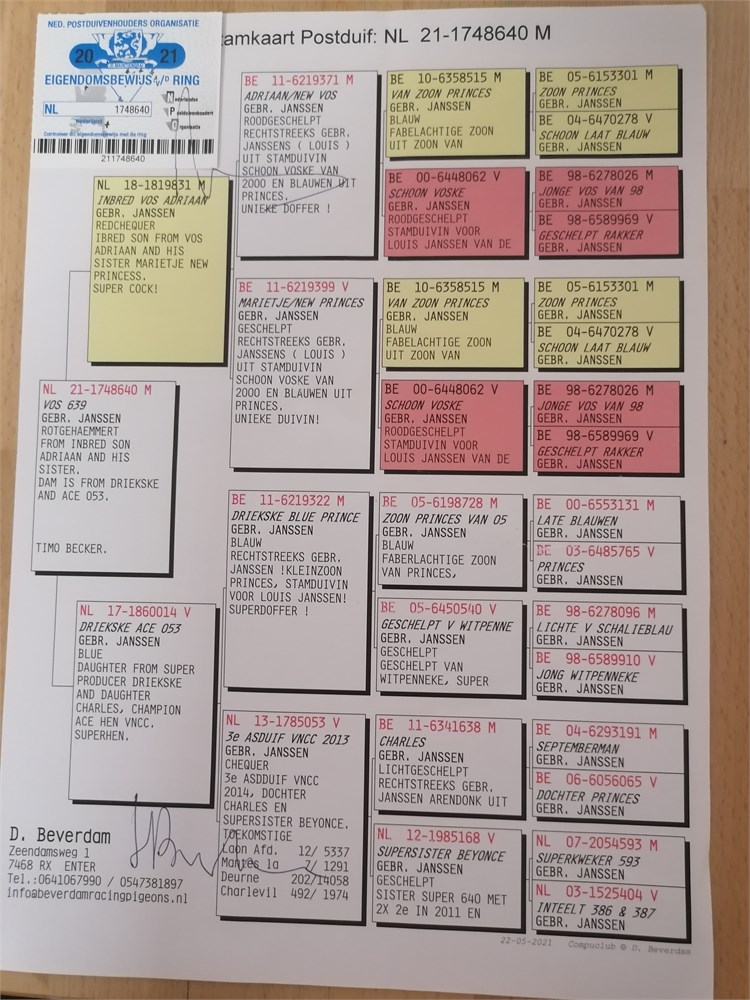 NED. POSTDUIVENHOUDERS ORGANISATIE
20 21
EIGENDOMSBEWIJS v/d RING
NL 1748640
Nederlandse
Postduivenhouders
Organisatie
211748640
tamkaart Postduif: NL 21-1748640 M
NL 21-1748640 M
VOS 639
GEBR. JANSSEN
ROTGEHAEMMERT
FROM INBRED SON
ADRIAAN AND HIS
SISTER.
DAM IS FROM DRIEKSKE
AND ACE 053.
TIMO BECKER.
NL 18-1819831 M
INBRED VOS ADRIAAN
GEBR. JANSSEN
REDCHEQUER
IBRED SON FROM VOS
ADRIAAN AND HIS
SISTER MARIETJE NEW
PRINCESS.
SUPER COCK!
NL 17-1860014 V
DRIEKSKE ACE 053
GEBR. JANSSEN
BLUE
DAUGHTER FROM SUPER
PRODUCER DRIEKSKE
AND DAUGHTER
CHARLES, CHAMPION
ACE HEN VNCC.
SUPERHEN.
BE 11-6219371 M
ADRIAAN/NEW VOS
GEBR. JANSSEN
ROODGESCHELPT
RECHTSTREEKS GEBR.
JANSSENS ( LOUIS )
UIT STAMDUIVIN
SCHOON VOSKE VAN
2000 EN BLAUWEN UIT
PRINCES.
UNIEKE DOFFER !
BE 11-6219399 V
MARIETJE/NEW PRINCES
GEBR. JANSSEN
GESCHELPT
RECHTSTREEKS GEBR.
JANSSENS ( LOUIS )
UIT STAMDUIVIN
SCHOON VOSKE VAN
2000 EN BLAUWEN UIT
PRINCES.
UNIEKE DUIVIN!
BE 11-6219322 M
DRIEKSKE BLUE PRINCE
GEBR. JANSSEN
BLAUW
RECHTSTREEKS GEBR.
JANSSEN !KLEINZOON
PRINCES, STAMDUIVIN
VOOR LOUIS JANSSEN!
SUPERDOFFER !
NL 13-1785053 V
3e ASDUIF VNCC 2013
GEBR. JANSSEN
CHEQUER
3e ASDDUIF VNCC
2014, DOCHTER
CHARLES EN
SUPERSISTER BEYONCE.
TOEKOMSTIGE
Laon Afd. 12/ 5337
Mantes la 7/ 1291
Deurne 202/14058
Charlevil 492/ 1974
BE 10-6358515 M
VAN ZOON PRINCES
GEBR. JANSSEN
BLAUW
FABELACHTIGE ZOON
UIT ZOON VAN
BE 00-6448062 V
SCHOON VOSKE
GEBR. JANSSEN
ROODGESCHELPT
STAMDUIVIN VOOR
LOUIS JANSSEN VAN DE
BE 10-6358515 M
VAN ZOON PRINCES
GEBR. JANSSEN
BLAUW
FABELACHTIGE ZOON
UIT ZOON VAN
BE 00-6448062 V
SCHOON VOSKE
GEBR. JANSSEN
ROODGESCHELPT
STAMDUIVIN VOOR
LOUIS JANSSEN VAN DE
BE 05-6198728 M
ZOON PRINCES VAN 05
GEBR. JANSSEN
BLAUW
FABERLACHTIGE ZOON
VAN PRINCES,
BE 05-6450540 V
GESCHELPT V WITPENNE
GEBR. JANSSEN
GESCHELPT
GESCHELPT VAN
WITPENNEKE, SUPER
BE 11-6341638 M
CHARLES
GEBR. JANSSEN
LICHTGESCHELPT
RECHTSTREEKS GEBR.
JANSSEN ARENDONK UIT
NL 12-1985168 V
SUPERSISTER BEYONCE
GEBR. JANSSEN
GESCHELPT
SISTER SUPER 640 MET
2X 2e IN 2011 EN
BE 05-6153301 M
ZOON PRINCES
GEBR. JANSSEN
BE 04-6470278 V
SCHOON LAAT BLAUW
GEBR. JANSSEN
BE 98-6278026 M
JONGE VOS VAN 98
GEBR. JANSSEN
BE 98-6589969 V
GESCHELPT RAKKER
GEBR. JANSSEN
BE 05-6153301 M
ZOON PRINCES
GEBR. JANSSEN
BE 04-6470278 V
SCHOON LAAT BLAUW
GEBR. JANSSEN
BE 98-6278026 M
JONGE VOS VAN 98
GEBR. JANSSEN
BE 98-6589969 V
GESCHELPT RAKKER
GEBR. JANSSEN
BE 00-6553131 M
LATE BLAUWEN
GEBR. JANSSEN
BE 03-6485765 V
PRINCES
GEBR. JANSSEN
BE 98-6278096 M
LICHTE V SCHALIEBLAU
GEBR. JANSSEN
BE 98-6589910 V
JONG WITPENNEKE
GEBR. JANSSEN
BE 04-6293191 M
SEPTEMBERMAN
GEBR. JANSSEN
BE 06-6056065 V
DOCHTER PRINCES
GEBR. JANSSEN
NL 07-2054593 M
SUPERKWEKER 593
GEBR. JANSSEN
NL 03-1525404 V
INTEELT 386 & 387
GEBR. JANSSEN
D. Beverdam
Zeendamsweg 1
7468 RX ENTER
Tel.:0641067990 / 0547381897
info@beverdamracingpigeons.nl
22-05-2021 Compuclub © D. Beverdam